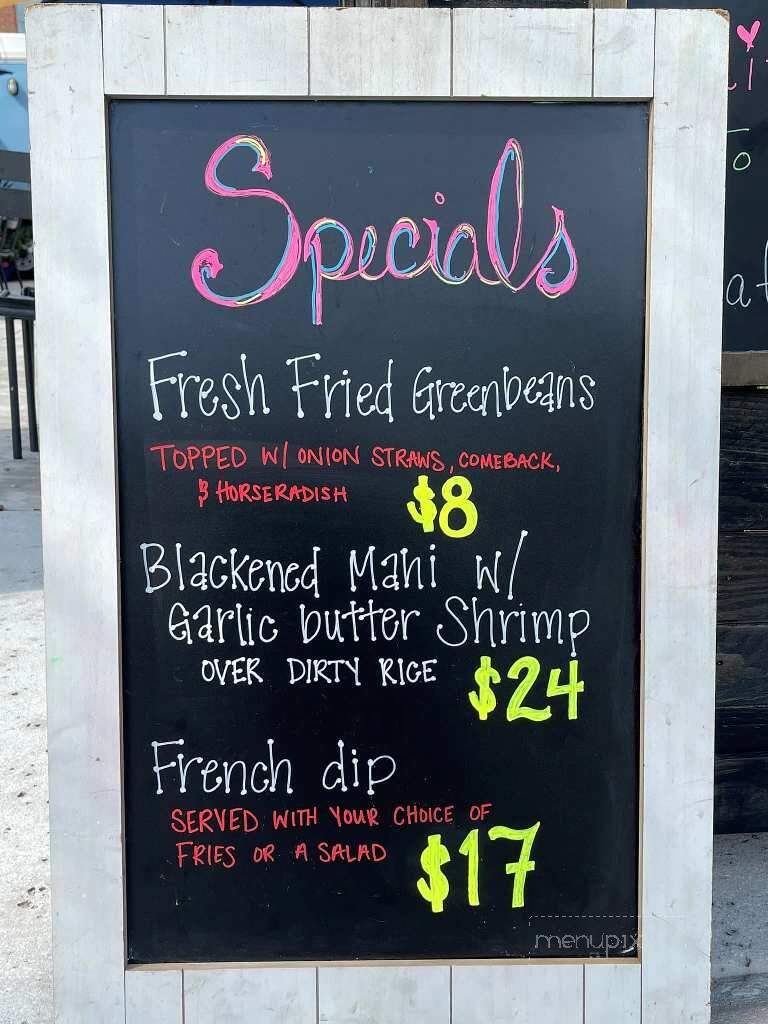 Specials
Fresh Fried Greenbeans
TOPPED W/ ONION STRAWS, COMEBACK,
& HORSERADISH $8
Blackened Mahi w/
Garlic butter Shrimp
OVER DIRTY RICE $24
French dip
SERVED WITH YOUR CHOICE OF
FRIES OR A SALAD $17
menupix